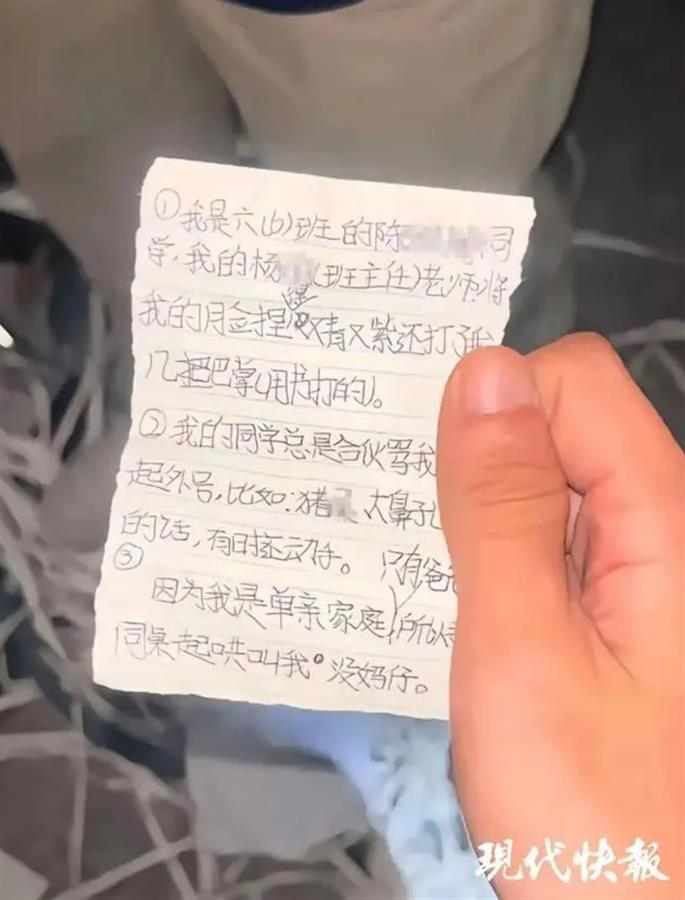 ①我是六(6)班的陈 同
学,我的杨 (班主任)老师,将
我的脸捏得又青又紫还打了我
几把巴掌(用书打的)。
②我的同学总是合伙骂我
起外号,比如:猪 大鼻孔
的话,有时还动手。
③ 只有爸爸
因为我是单亲家庭,所以
同桌起哄叫我"没妈仔。
现代快报